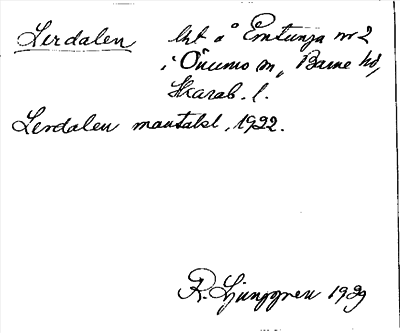 Lerdalen lht å Emtunga nr 2
i Önum sn, Barne hd,
Skarab. l.
Lerdalen mantalsl. 1922.
R. Ljunggren 1929